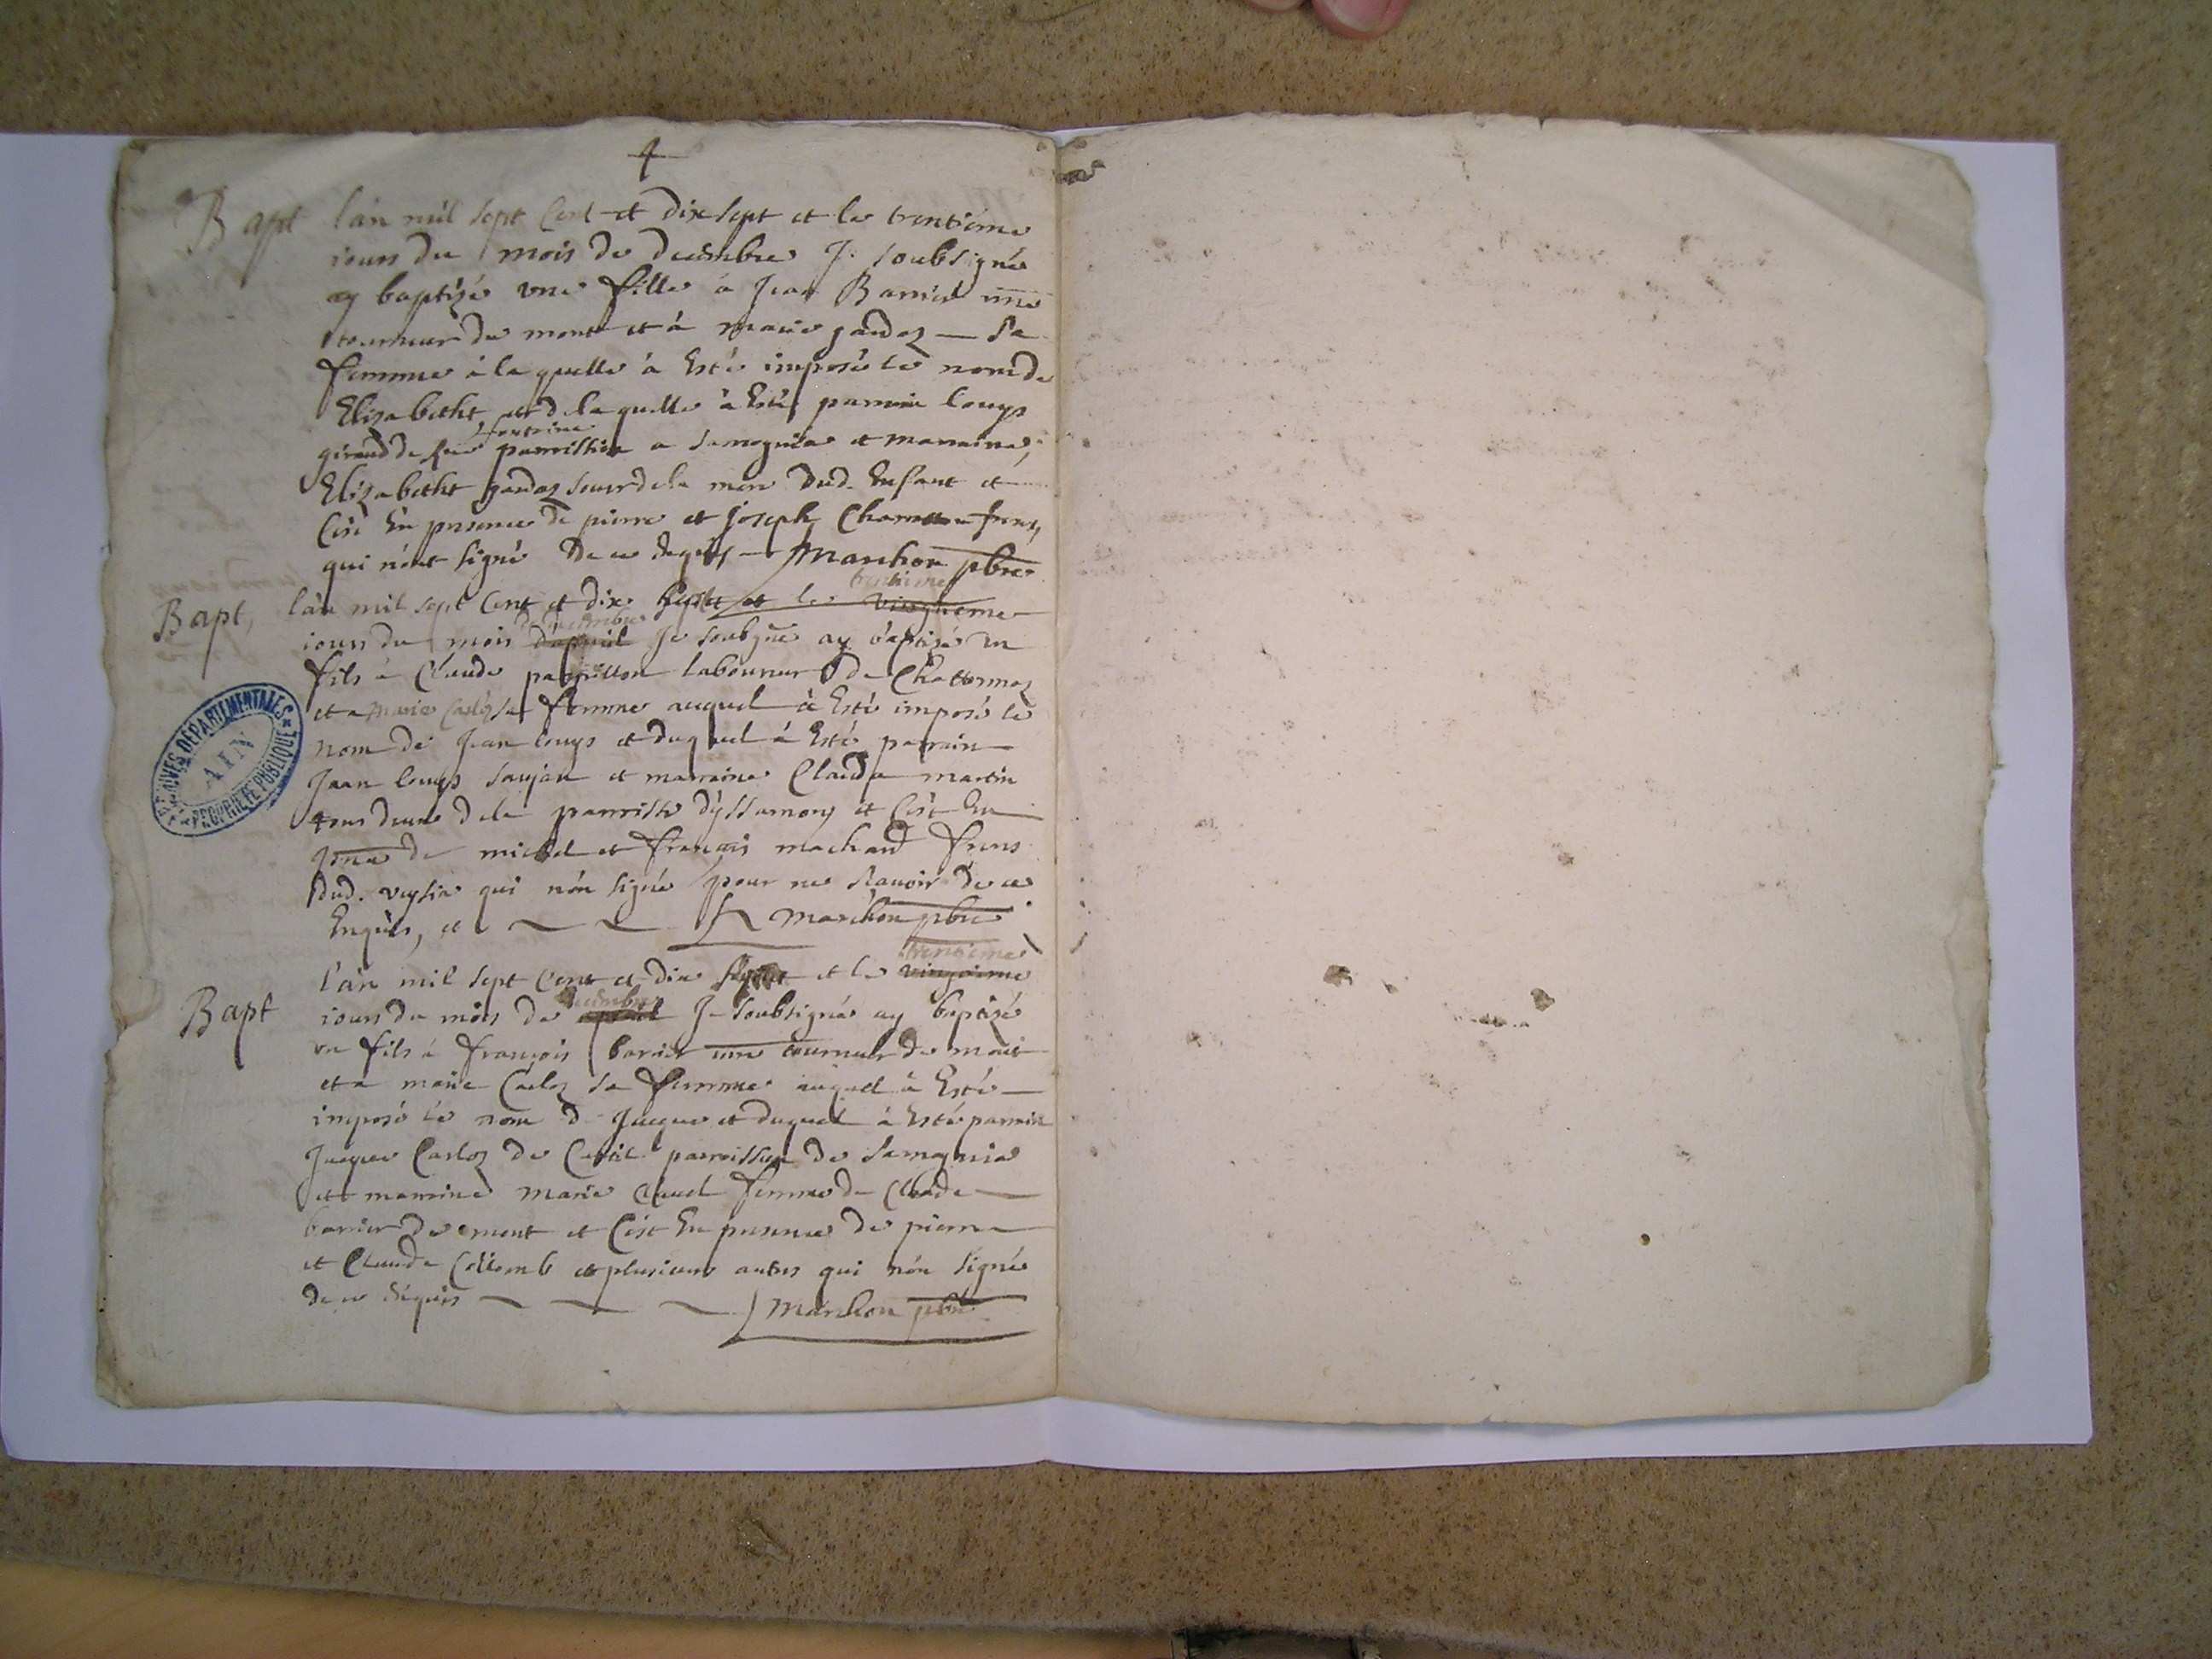 Bapt
l'an mil sept Cent et dix sept et le trentiéme
iour du mois de decembre Je soubsigné
ay baptizé vne fille à Jean Barrier me
tourneur de mont et à marie gardoz sa
femme à la quelle à Esté imposé le nom de
Elizabetht et de la quelle à Esté parrain louys
giraud de parroissien a samognia et marraine
Elizabetht gardoz soeur de la mere dud. Enfant et
C'est En presence de pierre et joseph freres
qui n'ont signé De ce Enquis Marchon pbre
Bapt,
l'an mil sept Cent et dix et le vingtieme
trentieme
iour du mois d'apvril Je soubgné ay baptizé vn
decembre
fils à Claude laboureur de Chattonnaz
et a marie Carloz sa femme auquel à Esté imposé le
nom de Jean louys et duquel à Esté parrain
Jean louys et marraine Clauda martin
tous deux de la parroisse d'yssamong et C'est En
de michel et françois machard freres
dud. vuysia qui n'on signé pour ne sçauoir de ce
Enquis, et Marchon pbre
Bapt
l'an mil sept Cent et dix et le vingtieme
trentieme
iour du mois de apvril Je soubsigné ay baptizé
decembre
vn fils à françois barrier me tourneur de mont
et a marie Carloz sa femme auquel à Esté
imposé le nom de Jacque et duquel à Esté parrain
Jacque Carloz de parroissien de Samognia
et marraine marie femme de Claude
barrier de mont et C'est En presence de pierre
et Claude Collomb et plusieurs autres qui n'on signé
de ce Enquis Marchon pbre
ARCHIVES DEPARTEMENTALES
AIN
PROPRIETE PUBLIQUE